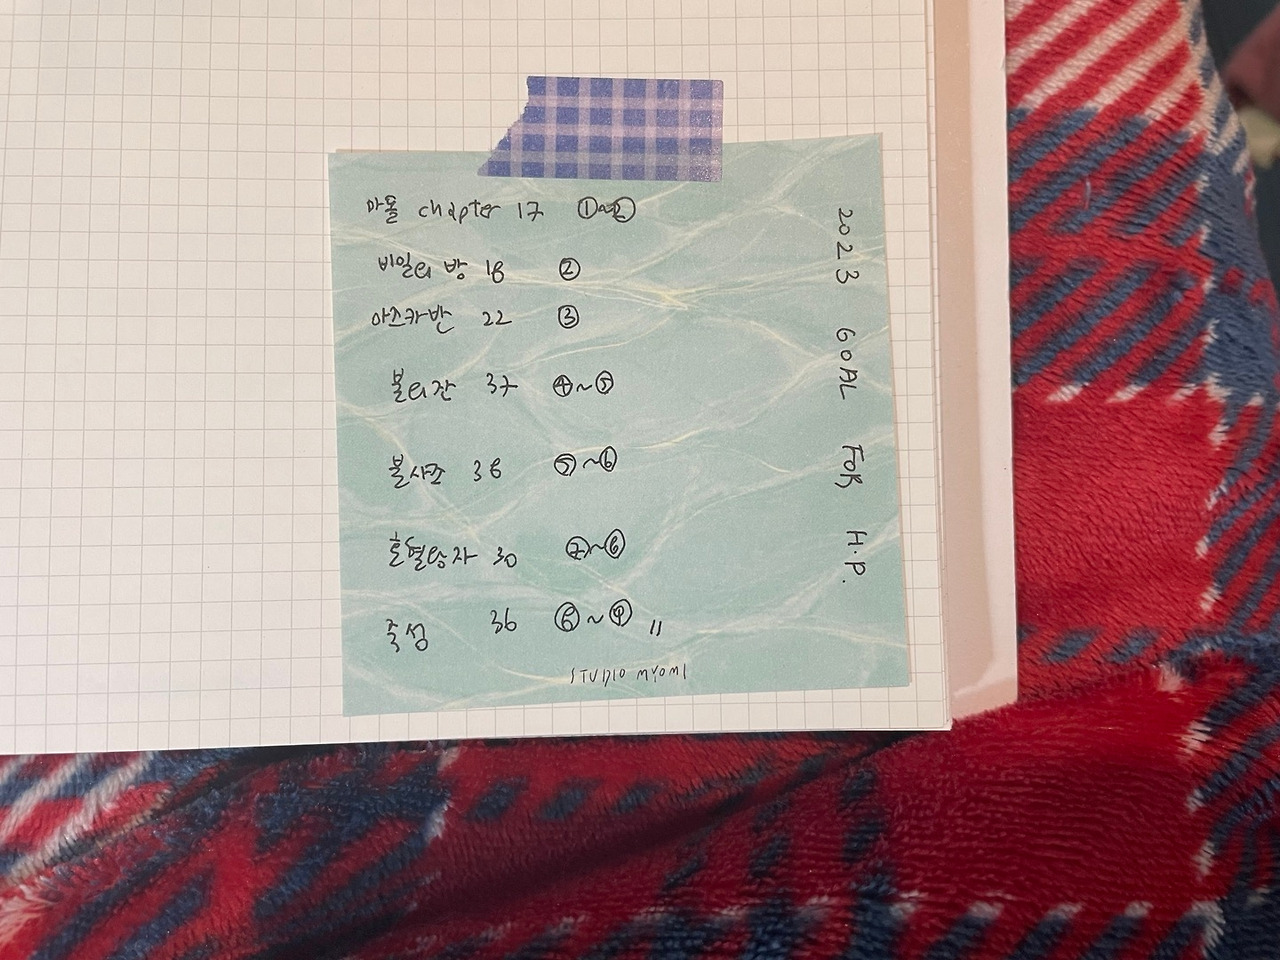 마돌 chapter 17 ①~②
비밀의 방 18 ②
아즈카반 22 ③
불의잔 37 ④~⑤
불사조 38 ⑤~⑥
혼혈왕자 30 ⑦~⑧
죽성 36 ⑧~⑨ 〃
STUDIO MYOMI
2023 GOAL FOR H.P.